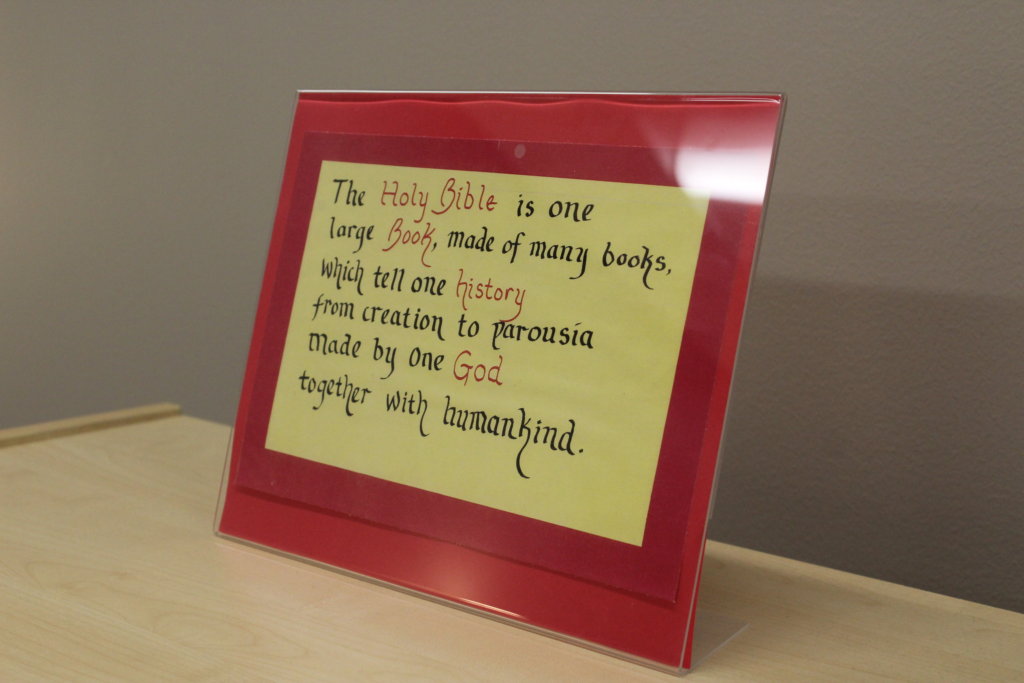 The Holy Bible is one
large Book, made of many books,
which tell one history
from creation to parousia
made by one God
together with humankind.